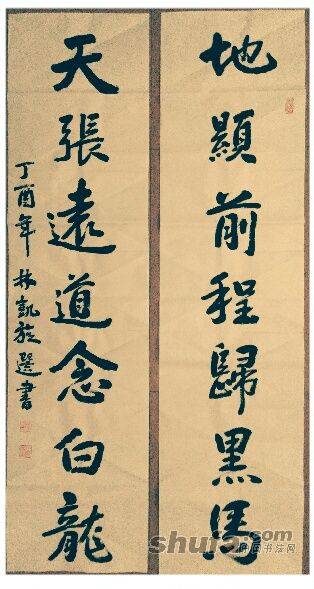 地顯前程歸黑馬
天張遠道念白龍
丁酉年 林凱旋選書
shufa.com
中国书法网